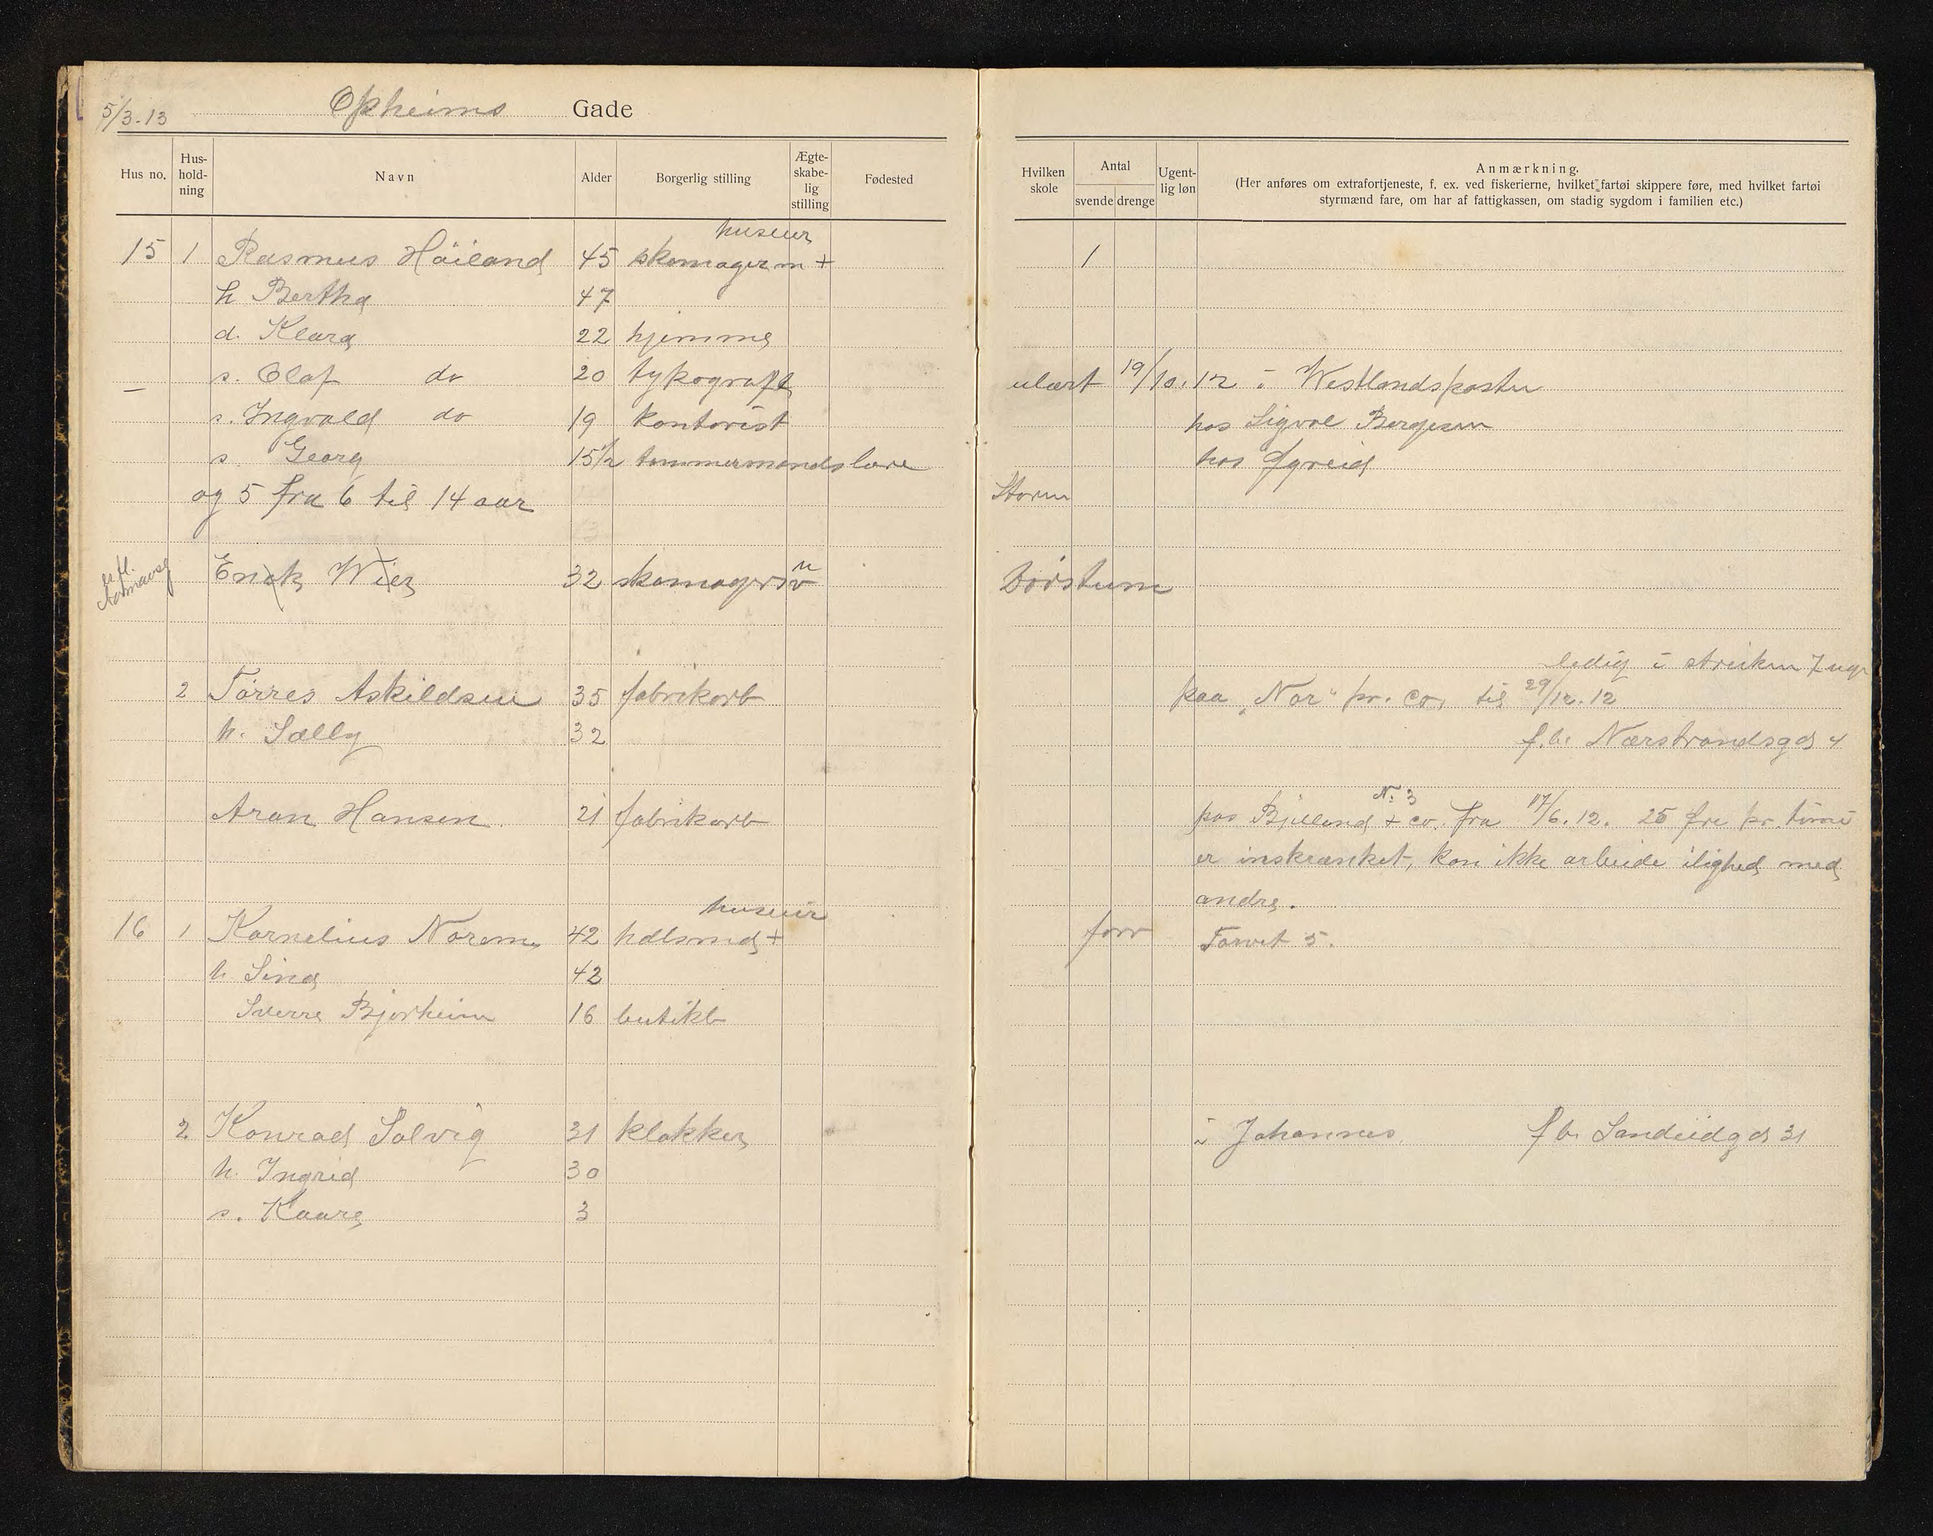 5/3-13 Opheims Gade
Hus no. Hus-hold-ning Navn Alder Borgerlig stilling Ægte-skabe-lig stilling Fødested Hvilken skole Antal svende drenge Ugent-lig løn Anmærkning.
(Her anføres om extrafortjeneste, f. ex. ved fiskerierne, hvilket fartøi skippere føre, med hvilket fartøi
styrmænd fare, om har af fattigkassen, om stadig sygdom i familien etc.)
huseier
15 1 Rasmus Höiland 45 skomagerm + 1
h Bertha 47
d. Klara 22 hjemme
— s. Olaf do 20 typograf ulært 19/10.12 i Westlandsposten
s. Ingvald do 19 kontorist hos Sigval Bergesen
s. Georg 15 1/2 tømmermandslære hos
og 5 fra 6 til 14 aar Storm
Erick Wier 32 skomagersv u
ledig i streiken 7 uger
2 Tørres Askildsen 35 fabrikarb paa "Nor" pr. co. til 29/12.12
h. Sælly 32 f.b. Nærstrandsgd 4
No 3
Aran Hansen 21 fabrikarb hos Bjelland + co. fra 17/6.12. 25 øre pr. time
er inskrænket, kan ikke arbeide ilighed med
andre.
huseier
16 1 Kornelius Norem 42 hdlsmd + forr Torvet 5.
h Sina 42
Sverre Bjorheim 16 butikb
2 Konrad Solvig 31 klokker i Johannes f b. Sandeidgd 31
h. Ingrid 30
s. Kaare 3